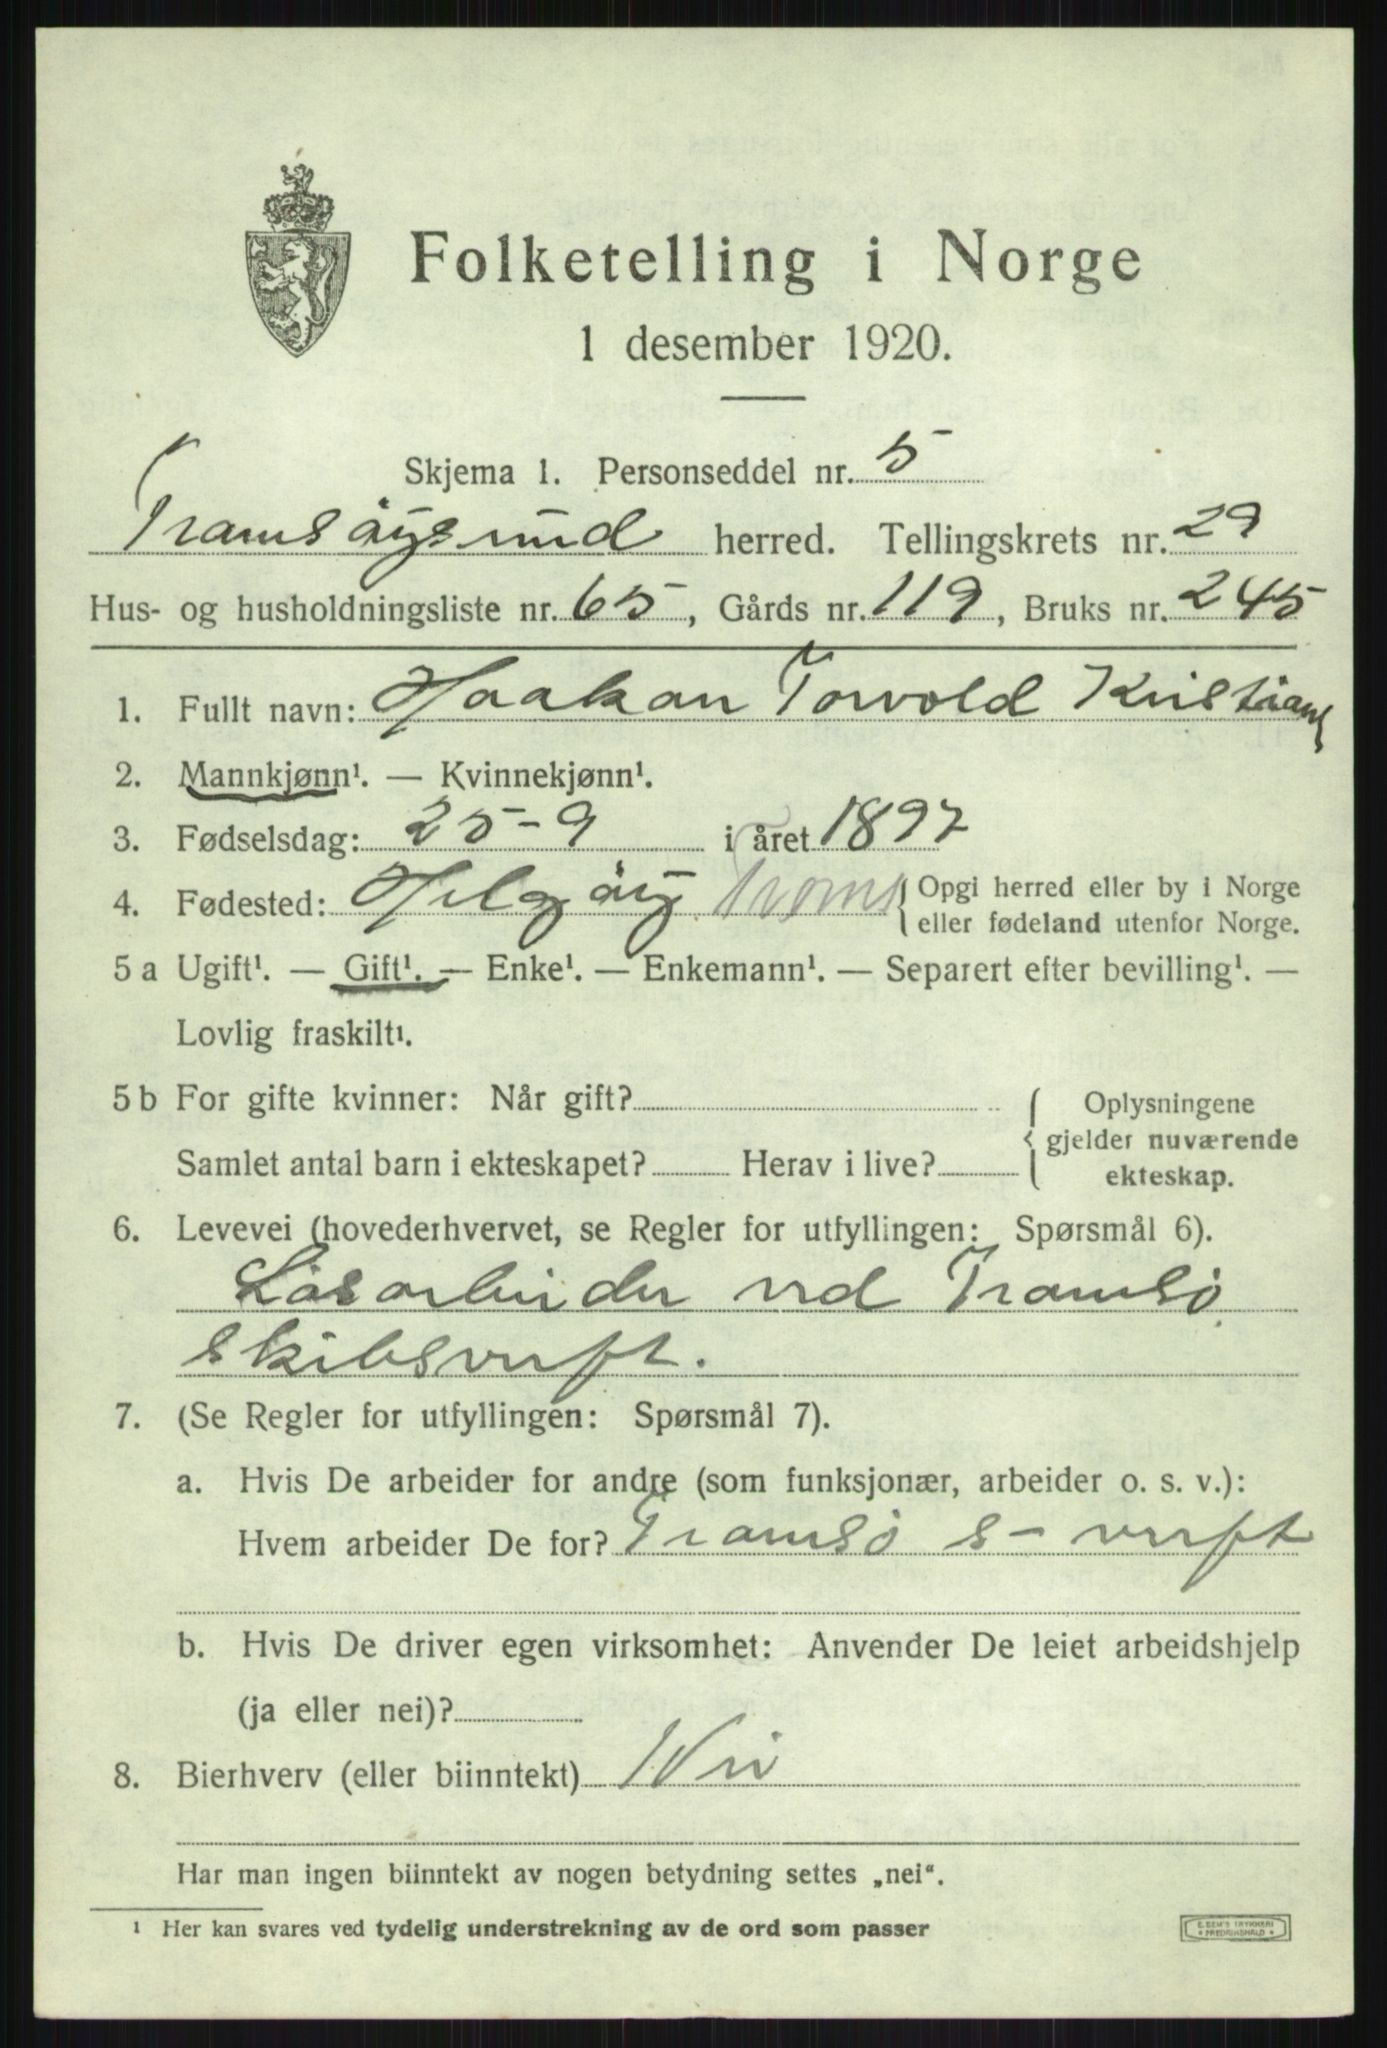 Folketelling i Norge
1 desember 1920.
Skjema 1. Personseddel nr. 5
Tromsøysund herred. Tellingskrets nr. 29
Hus- og husholdningsliste nr. 65, Gårds nr. 119, Bruks nr. 245
1. Fullt navn: Haakon Torvold Kristians
2. Mannkjønn¹. — Kvinnekjønn¹.
3. Fødselsdag: 25-9 i året 1897
4. Fødested: Helgøy Troms { Opgi herred eller by i Norge
eller fødeland utenfor Norge.
5 a Ugift¹. — Gift¹. — Enke¹. — Enkemann¹. — Separert efter bevilling¹. —
Lovlig fraskilt¹.
5 b For gifte kvinner: Når gift? { Oplysningene
gjelder nuværende
Samlet antal barn i ekteskapet? Herav i live? ekteskap.
6. Levevei (hovederhvervet, se Regler for utfyllingen: Spørsmål 6).
Løsarbeider ved Tromsø
skibsverft.
7. (Se Regler for utfyllingen: Spørsmål 7).
a. Hvis De arbeider for andre (som funksjonær, arbeider o. s. v.):
Hvem arbeider De for? Tromsø s- verft
b. Hvis De driver egen virksomhet: Anvender De leiet arbeidshjelp
(ja eller nei)?
8. Bierhverv (eller biinntekt) Nei
Har man ingen biinntekt av nogen betydning settes „nei“.
¹ Her kan svares ved tydelig understrekning av de ord som passer
E. SEM'S TRYKKERI
* FREDRIKSHALD *